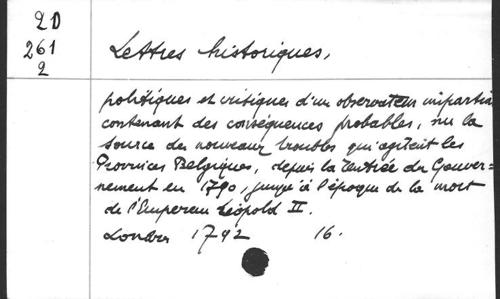 2D
261
2
Lettres historiques,
politiques et critiques d'un observateur impartial
contenant des conséquences probables, sur la
source des nouveaux troubles qui agitent les
Provinces Belgiques, depuis la rentrée du Gouver=
nement en 1790, jusqu'à l'époque de la mort
de l'Empereur Léopold II.
Londres 1792 16.